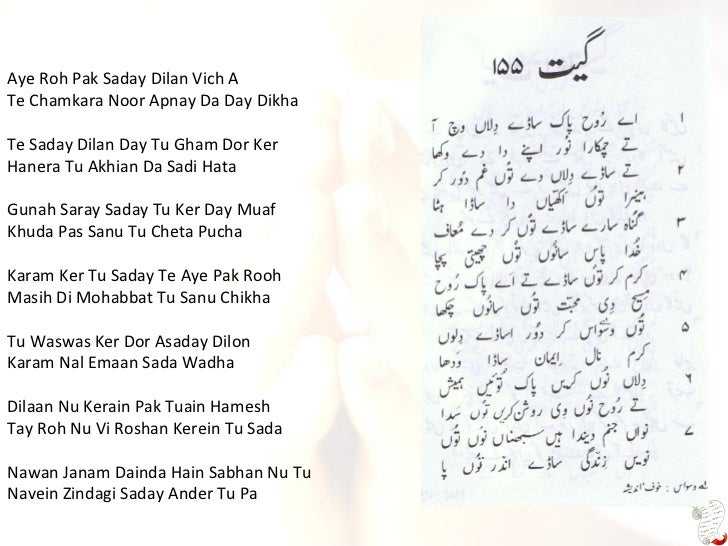 Aye Roh Pak Saday Dilan Vich A
Te Chamkara Noor Apnay Da Day Dikha
Te Saday Dilan Day Tu Gham Dor Ker
Hanera Tu Akhian Da Sadi Hata
Gunah Saray Saday Tu Ker Day Muaf
Khuda Pas Sanu Tu Cheta Pucha
Karam Ker Tu Saday Te Aye Pak Rooh
Masih Di Mohabbat Tu Sanu Chikha
Tu Waswas Ker Dor Asaday Dilon
Karam Nal Emaan Sada Wadha
Dilaan Nu Kerain Pak Tuain Hamesh
Tay Roh Nu Vi Roshan Kerein Tu Sada
Nawan Janam Dainda Hain Sabhan Nu Tu
Navein Zindagi Saday Ander Tu Pa
گیت ۱۵۵
۱ اے رُوح پاک ساڈے دِلاں وچ آ
تے چمکارا نُور اپنے دا دے وکھا
۲ تے ساڈے دِلاں دے تُوں غم دُور کر
ہنیرا توُں اکھّیاں دا ساڈا ہٹا
۳ گناہ سارے ساڈے تُوں کر دے مُعاف
خُدا پاس سانُوں تُوں چھیتی پُچا
۴ کرم کر تُوں ساڈے تے اَے پاک رُوح
مسیح دی محبّت تُوں سانُوں چکھا
۵ تُوں وسواس کر دُور اساڈے دِلوں
کرم نال اِیمان ساڈا ودھا
۶ دِلاں نُوں کریں پاک تُوئیں ہمیش
تے رُوح نُوں وی روشن کریں تُوں سدا
۷ نواں جنم دیندا ہیں سبھناں نُوں تُوں
نویں زِندگی ساڈے اندر تُوں پا
لے وسواس : خوف اندیشہ